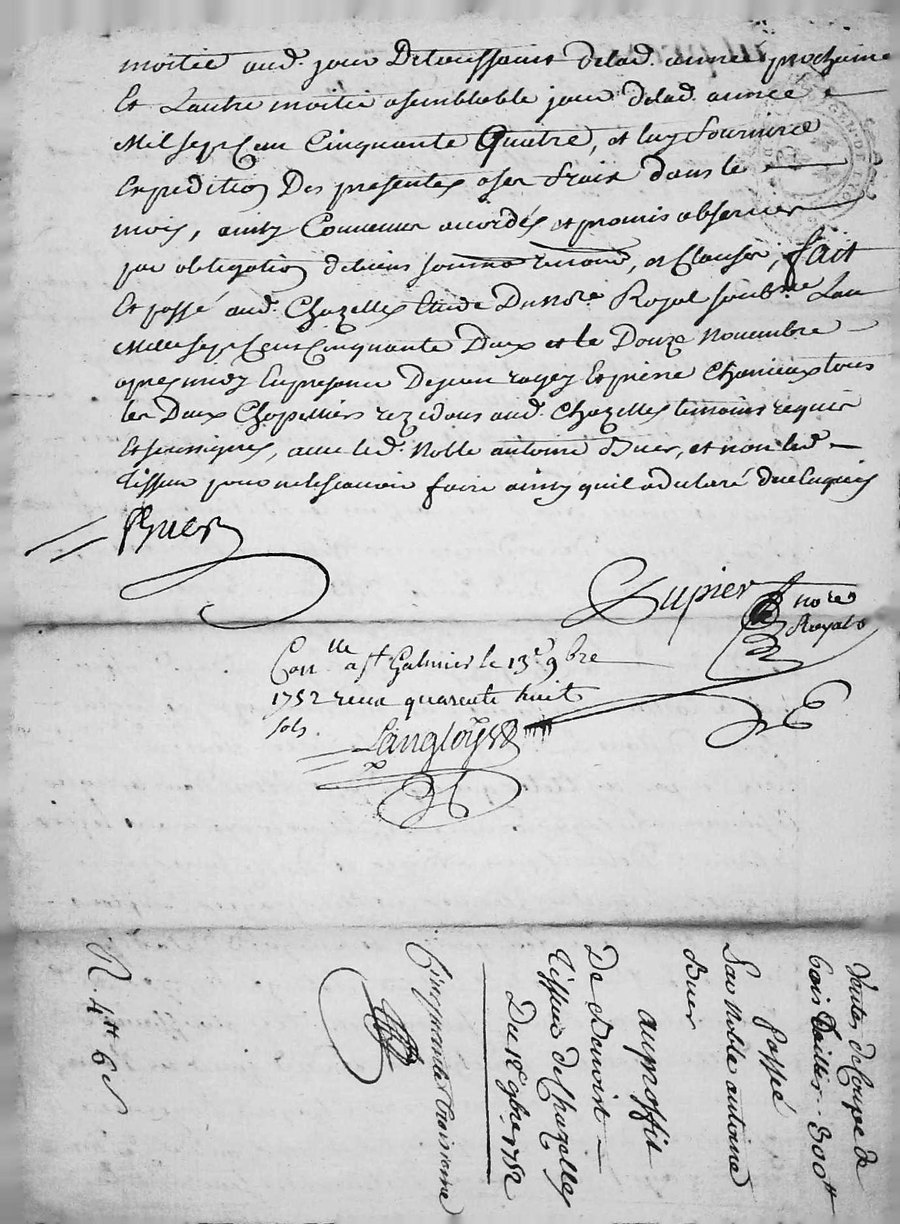 moitié aud. jour De toussaint delad. année prochaine
Et Lautre moitié a semblable jour delad. année
Mil sept Cent Cinquante Quatre, et luy fournira
Expedition Des presentes a ses fraix dans le
mois, ainsy Convenu accordés et promis observer
par obligation de biens soumo renond, et Clauses, fait
Et passé aud. Chazelles Etude Du nore Royal soubne Lan
Mille sept Cent Cinquante Deux et le Douze novembre
apres midy En presence De jean et pierre tous
les Deux Chapelliers rezidans aud. Chazelles temoins requis
Et soussignés, avec led. Noble antoine Buer, et non led.
Tissur pour ne le scavoir faire ainsy quil a declaré de ce enquis
Buer
Dupier nore Royal
Conlle a st Galmier le 13e 9bre
1752 receu quarente huit
sols
Langloys
Ventes de Coupe de
bois Taillis - 300tt
Passée
Par Noble antoine
Buer
au proffit
De Benoist
Tissur de Chazelles
Du 12e 9bre 1752
Cinquante troisieme
R. 4tt 6s